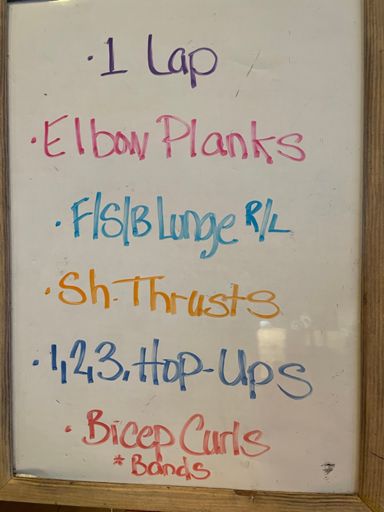 · 1 Lap
· Elbow Planks
· F/S/B Lunge R/L
· Sh. Thrusts
· 1,2,3, Hop-Ups
· Bicep Curls
* Bands